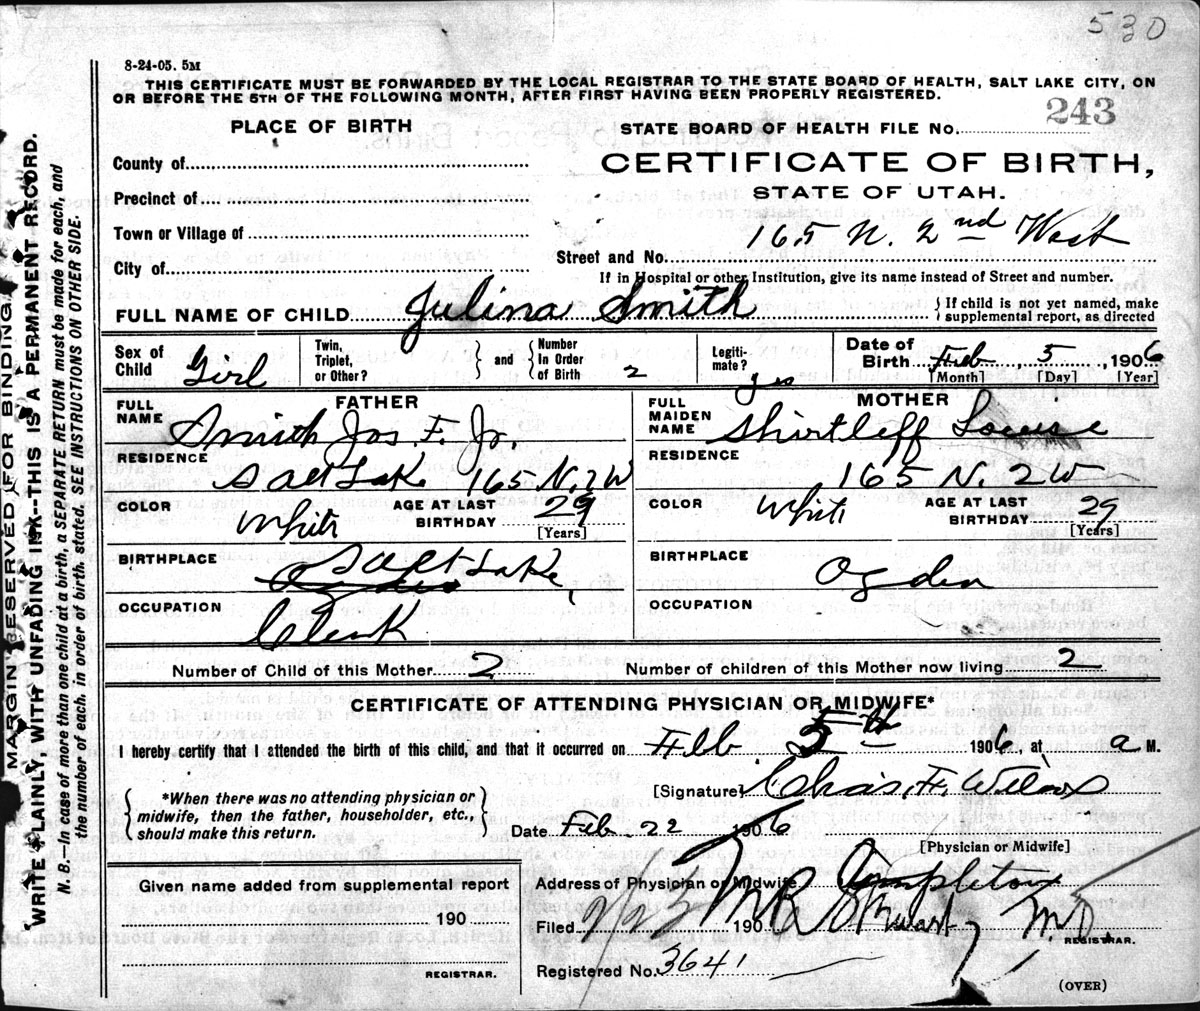 530
8-24-05. 5M
THIS CERTIFICATE MUST BE FORWARDED BY THE LOCAL REGISTRAR TO THE STATE BOARD OF HEALTH, SALT LAKE CITY, ON
OR BEFORE THE 5TH OF THE FOLLOWING MONTH, AFTER FIRST HAVING BEEN PROPERLY REGISTERED.
PLACE OF BIRTH
STATE BOARD OF HEALTH FILE No. 243
County of
CERTIFICATE OF BIRTH,
Precinct of
STATE OF UTAH.
Town or Village of
Street and No. 165 N. 2nd West
City of
If in Hospital or other Institution, give its name instead of Street and number.
FULL NAME OF CHILD Julina Smith
{If child is not yet named, make
supplemental report, as directed
Sex of Child Girl
Twin, Triplet, or Other? } and { Number In Order of Birth 2
Legiti-mate? yes
Date of Birth Feb 5, 1906
[Month] [Day] [Year]
FATHER
FULL NAME Smith Jos. F. Jr.
RESIDENCE Salt Lake 165 N. 2 W
COLOR White
AGE AT LAST BIRTHDAY 29
[Years]
BIRTHPLACE Salt Lake,
OCCUPATION Clerk
MOTHER
FULL MAIDEN NAME Shirtleff Louise
RESIDENCE 165 N. 2 W
COLOR White
AGE AT LAST BIRTHDAY 29
[Years]
BIRTHPLACE Ogden
OCCUPATION
Number of Child of this Mother 2
Number of children of this Mother now living 2
CERTIFICATE OF ATTENDING PHYSICIAN OR MIDWIFE*
I hereby certify that I attended the birth of this child, and that it occurred on Feb 5th 1906 at a M.
{*When there was no attending physician or
midwife, then the father, householder, etc.,
should make this return.}
[Signature] Chas. F. Wilcox
Date Feb. 22 1906
[Physician or Midwife]
Given name added from supplemental report
190
REGISTRAR.
Address of Physician or Midwife Templeton
Filed 190 M.D.
REGISTRAR.
Registered No. 3641
(OVER)
MARGIN RESERVED FOR BINDING.
WRITE PLAINLY, WITH UNFADING INK--THIS IS A PERMANENT RECORD.
N. B.—In case of more than one child at a birth, a SEPARATE RETURN must be made for each, and
the number of each, in order of birth, stated. SEE INSTRUCTIONS ON OTHER SIDE.